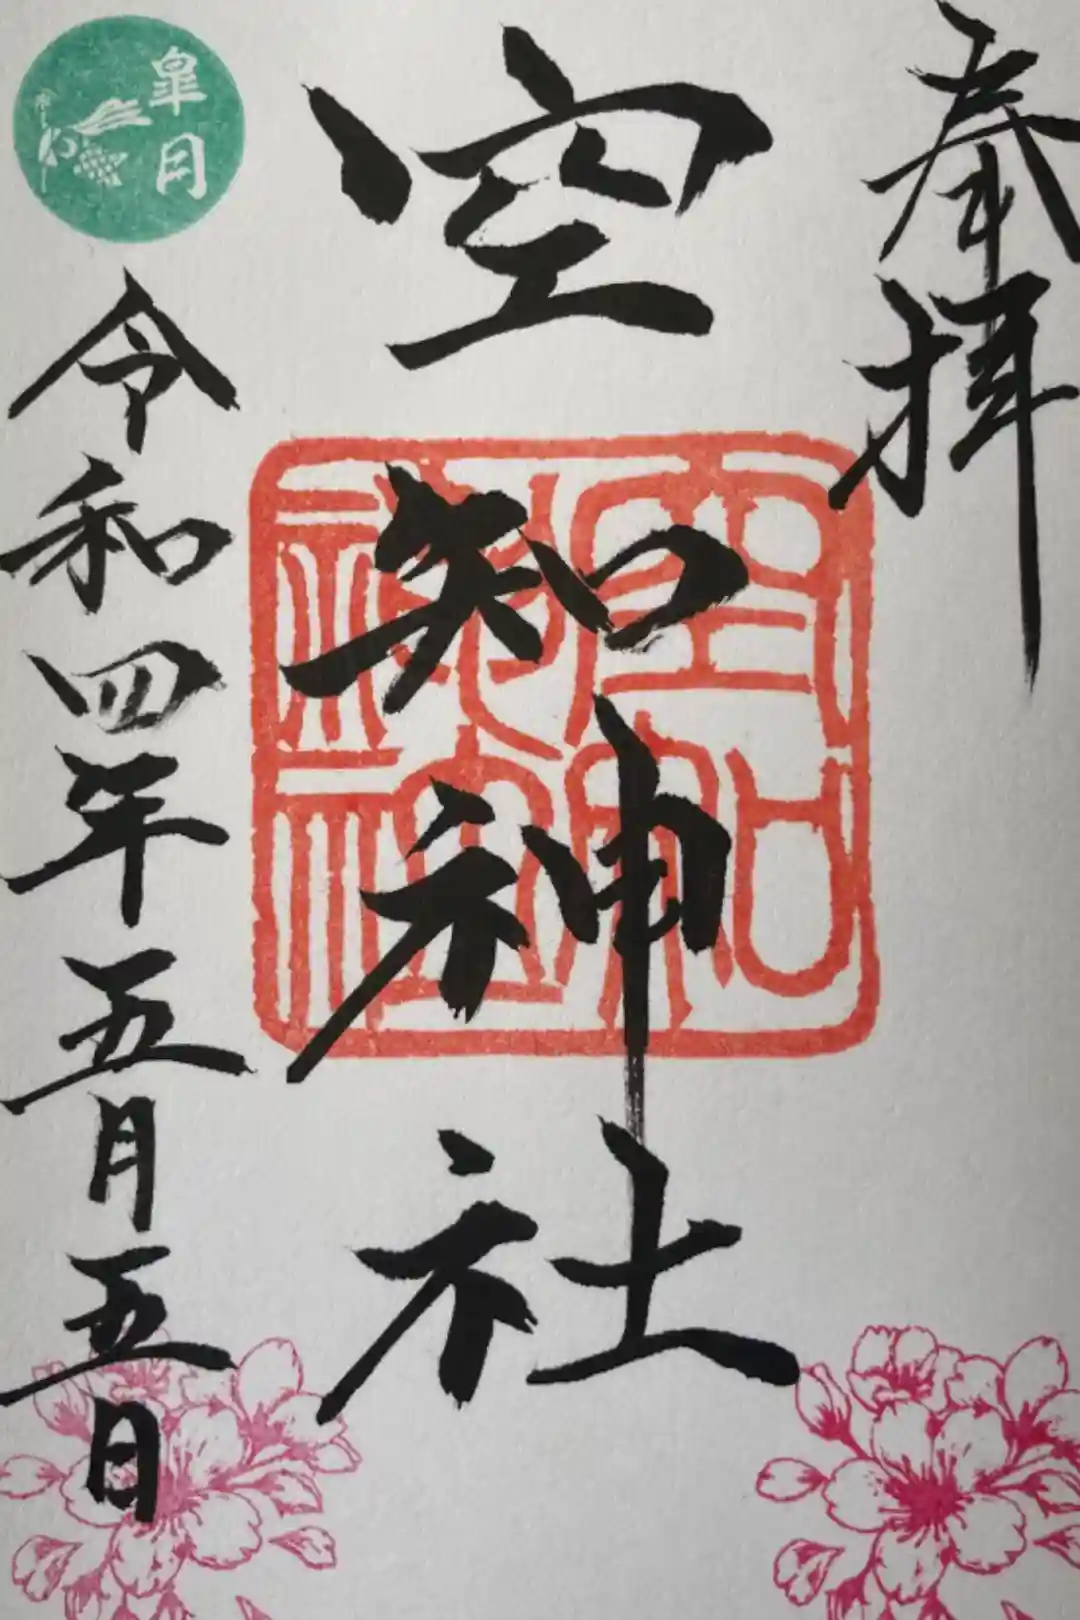 奉拝
空知神社
空知
神社
皐月
令和四年五月五日